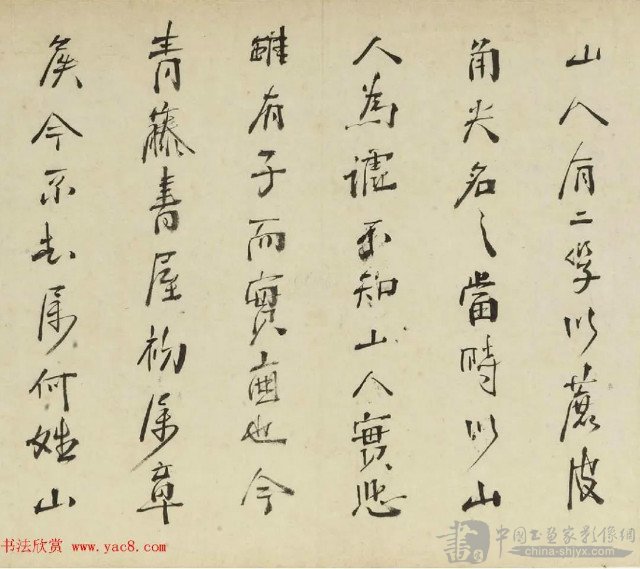 山人有二以皮
角尖名之當時以山
人為謔不知山人實悲
雖有子而實也今
青藤書屋初屬章
侯今不屬何姓山
书法欣赏 www.yac8.com
中國书画家影像網
china-shjyx.com